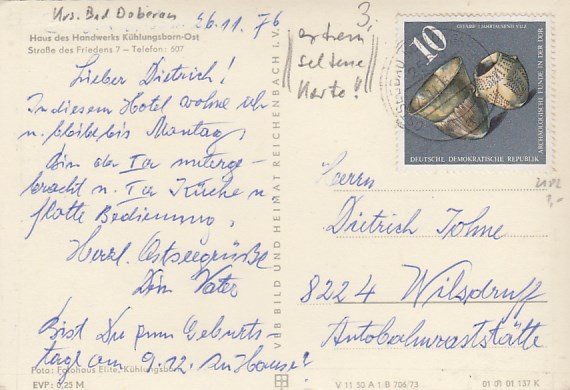 Krs. Bad Doberan
26.11.76
3,-
Haus des Handwerks Kühlungsborn-Ost
Straße des Friedens 7 – Telefon: 607
extrem
seltene
Karte!!
Lieber Dietrich!
In diesem Hotel wohne ich
u. bleibe bis Montag,
bin da Ia unterge-
bracht u. Ia Küche u.
flotte Bedienung,
Herzl. Ostseegrüße
Dein Vater
Bist Du zum Geburts-
tage am 9.12. zu Hause?
Foto: Fotohaus Elite, Kühlungsborn
EVP: 0,25 M
VEB BILD UND HEIMAT REICHENBACH I. V.
10
DEUTSCHE DEMOKRATISCHE REPUBLIK
ARCHÄOLOGISCHE FUNDE IN DER DDR
2182
3,-
Herrn
Dietrich Johne
8224 Wilsdruff
Autobahnraststätte
V 11 50 A 1/B 706/73
01 01 01 137 K